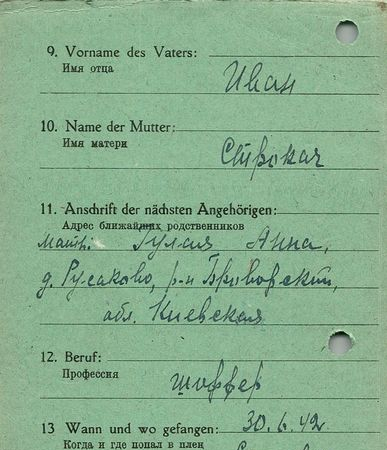 9. Vorname des Vaters:
Имя отца
Иван
10. Name der Mutter:
Имя матери
Строкач
11. Anschrift der nächsten Angehörigen:
Адрес ближайших родственников
Мать: Анна,
д. Русаково, р-н Броворский,
обл. Киевская
12. Beruf:
Профессия
шоффер
13 Wann und wo gefangen: 30.6.42
Когда и где попал в плен